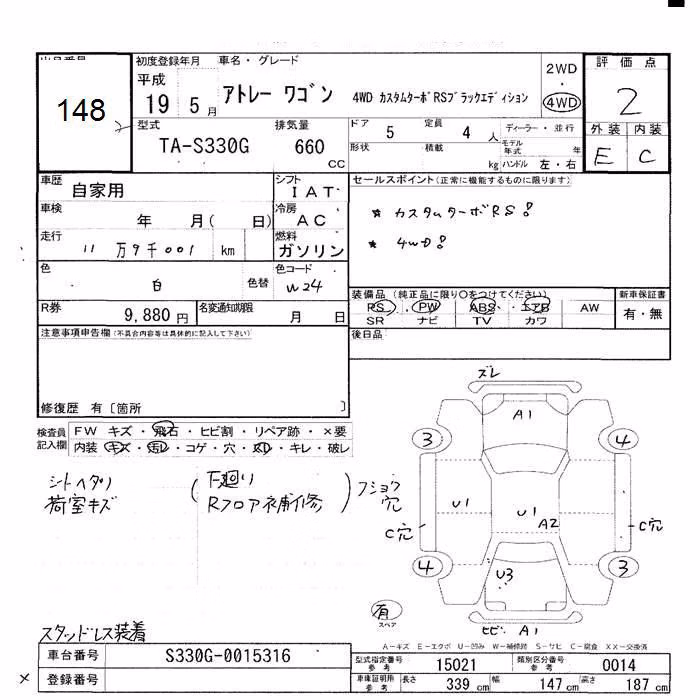 出品番号
148
初度登録年月
平成
19 5月
車名・グレード
アトレー ワゴン 4WD カスタムターボRSブラックエディション
2WD
・
4WD
評価点
2
外装 内装
E C
型式
TA-S330G
排気量
660
CC
ドア 5 定員 4 人
形状 積載 kg
ディーラー・並行
モデル年式 年
ハンドル 左・右
車歴
自家用
シフト
IAT
セールスポイント(正常に機能するものに限ります)
* カスタムターボRS!
* 4WD!
車検
年 月( 日)
冷房
AC
走行
11万9千001 km
燃料
ガソリン
色
白
色替
色コード
W24
装備品(純正品に限り〇をつけてください)
PS・PW・ABS・エアB AW
SR ナビ TV カワ
新車保証書
有・無
R券
9,880円
名変通知期限
月 日
後日品
注意事項申告欄(不具合内容等は具体的に記入して下さい)
修復歴 有〔箇所 〕
検査員記入欄
FW キズ・飛石・ヒビ割・リペア跡・×要
内装・キズ・汚レ・コゲ・穴・スレ・キレ・破レ
シートヘタリ
荷室キズ
(下廻り
Rフロア補修)
フショウ穴
ズレ
A1
3
4
U1
U1
A2
C穴
C穴
4
3
U3
有
スペア
ヒビ A1
スタッドレス装着
A-キズ E-エクボ U-凹み W-補修跡 S-サビ C-腐食 XX-交換済
車台番号 S330G-0015316
× 登録番号
型式指定番号参考 15021 類別区分番号参考 0014
車庫証明用参考 長さ 339cm 幅 147cm 高さ 187cm